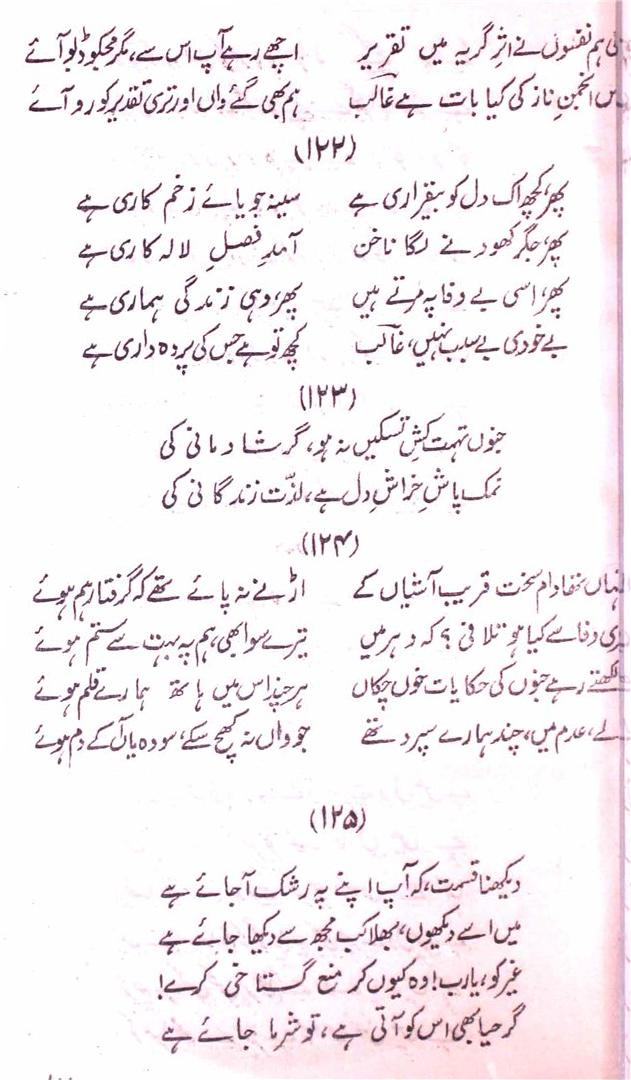 ہم نفسوں نے اثرِ گریہ میں تقریر اچھے رہے آپ اس سے، مگر مجکو ڈبو آئے
انجمنِ ناز کی کیا بات ہے غالبؔ ہم بھی گئے واں اور تری تقدیر کو رو آئے
(۱۲۲)
پھر، کچھ اک دل کو بیقراری ہے سینہ جویائے زخم کاری ہے
پھر، جگر کھودنے لگا ناخن آمدِ فصلِ لالہ کاری ہے
پھر، اسی بے وفا پہ مرتے ہیں پھر، وہی زندگی ہماری ہے
بے خودی بے سبب نہیں، غالبؔ کچھ تو ہے جس کی پردہ داری ہے
(۱۲۳)
جنوں تہمت کشِ تسکیں نہ ہو، گر شادمانی کی
نمک پاشِ خراشِ دل ہے، لذّت زندگانی کی
(۱۲۴)
تھا دام سخت قریب آشیاں کے اڑنے نہ پائے تھے کہ گرفتار ہم ہوئے
وفا سے کیا ہو تلافی؟ کہ دہر میں تیرے سوا بھی، ہم پہ بہت سے ستم ہوئے
لکھتے رہے جنوں کی حکایات خوں چکاں ہر چند اس میں ہاتھ ہمارے قلم ہوئے
عدم میں، چند ہمارے سپرد تھے جو واں نہ کھچ سکے، سو وہ یاں آ کے دم ہوئے
(۱۲۵)
دیکھنا قسمت، کہ آپ اپنے پہ رشک آ جائے ہے
میں اسے دیکھوں، بھلا کب مجھ سے دیکھا جائے ہے
غیر کو، یارب! وہ کیوں کر منع گستاخی کرے!
گر حیا بھی اس کو آتی ہے، تو شرما جائے ہے